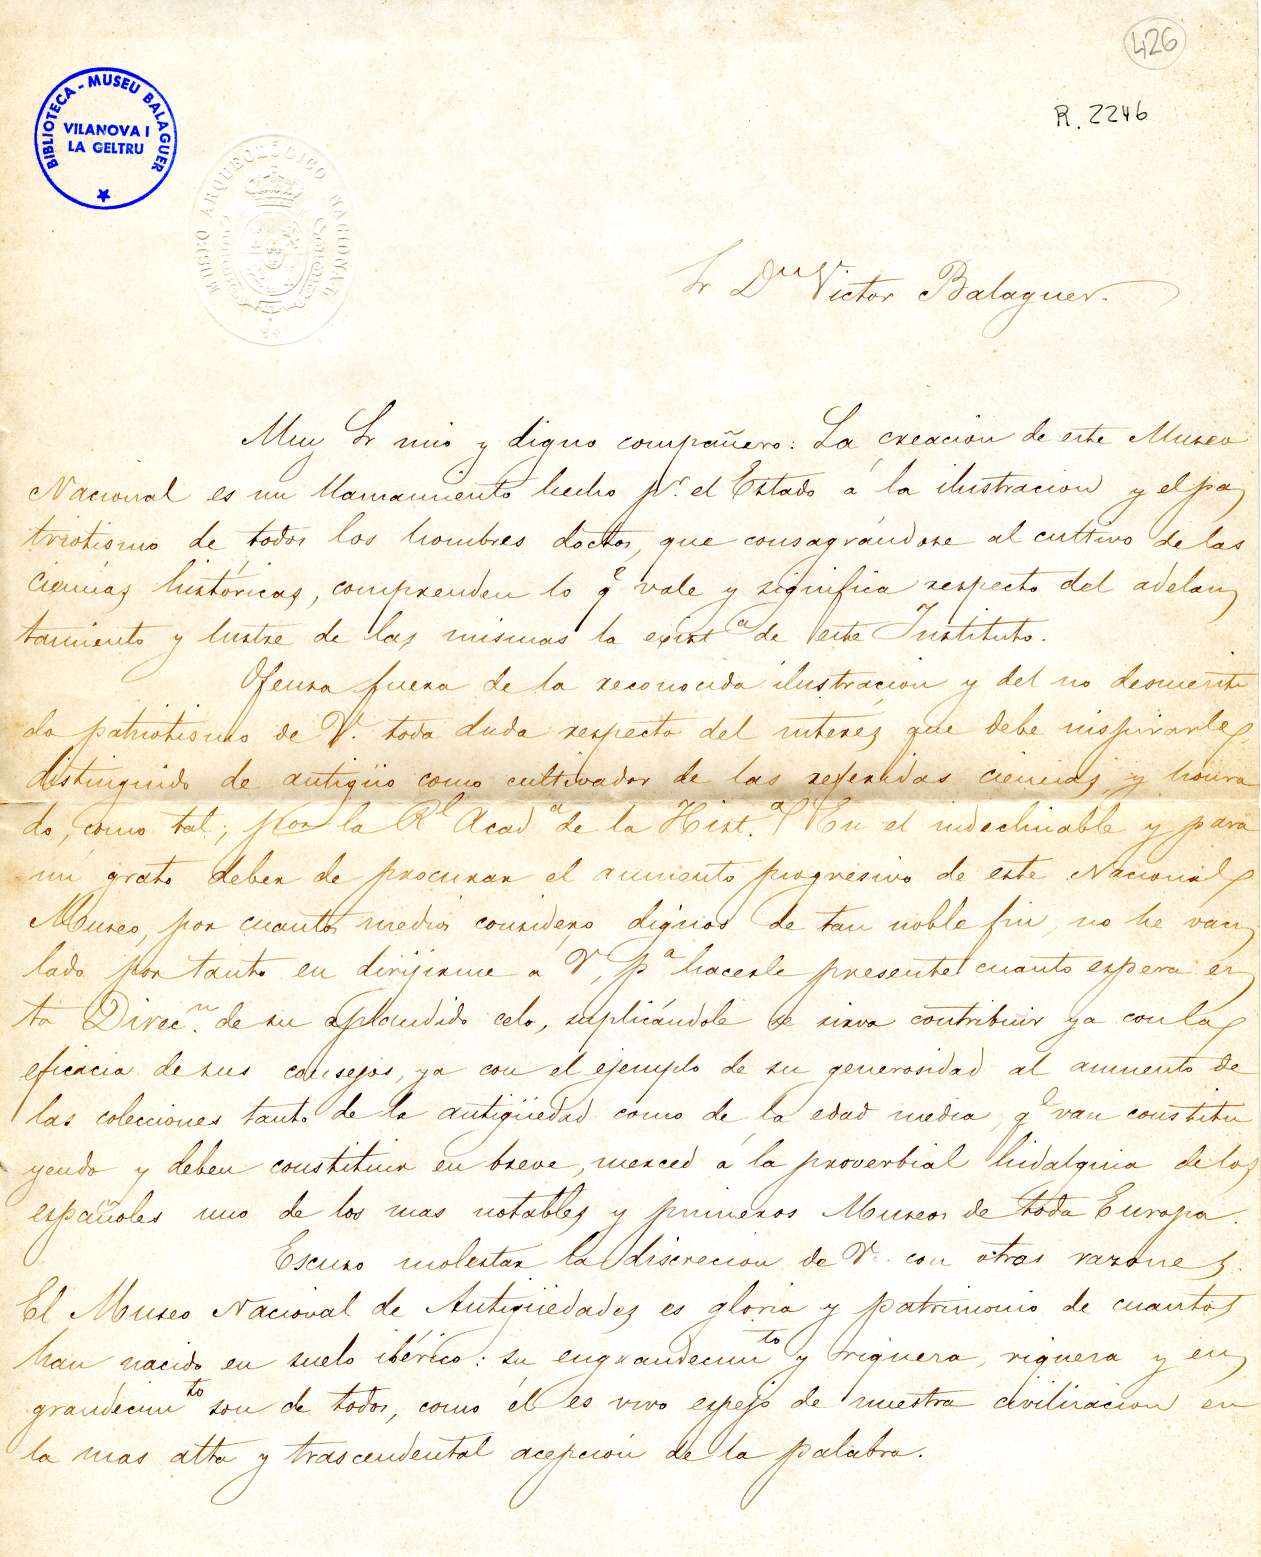 426
R. 2246
BIBLIOTECA - MUSEU BALAGUER
VILANOVA I
LA GELTRU
MUSEO ARQUEOLÓGICO NACIONAL
Sr Dn Victor Balaguer.
Muy Sr mio y digno compañero: La creacion de este Museo
Nacional es un llamamiento hecho pr. el Estado á la ilustracion y el pa
triotismo de todos los hombres doctos, que consagrándose al cultivo de las
ciencias históricas, comprenden lo qe vale y significa respecto del adelan
tamiento y lustre de las mismas la exista de este Instituto.
Ofensa fuera de la reconocida ilustracion y del no desmenti
do patriotismo de V. toda duda respecto del interés que debe inspirarle,
distinguido de antigüo como cultivador de las referidas ciencias, y honra
do, como tal, por la Rl Acada de la Hist.a En el indeclinable y para
mi grato deber de procurar el aumento progresivo de este Nacional
Museo, por cuantos medios considero dignos de tan noble fin, no he vaci
lado por tanto en dirijirme á V, pa hacerle presente cuanto espera es
ta Direcn. de su aplaudido celo, suplicándole se sirva contribuir ya con la
eficacia de sus consejos, ya con el ejemplo de su generosidad al aumento de
las colecciones tanto de la antigüedad como de la edad media, qe van constitu
yendo y deben constituir en breve, merced á la proverbial hidalguia de los
españoles uno de los mas notables y primeros Museos de toda Europa.
Escuso molestar la discrecion de V. con otras razones.
El Museo Nacional de Antigüedades es gloria y patrimonio de cuantos
han nacido en suelo ibérico: su engrandecimto y riquera, riquera y en
grandecimto son de todos, como él es vivo espejo de nuestra civiliracion en
la mas alta y trascendental acepcion de la palabra.